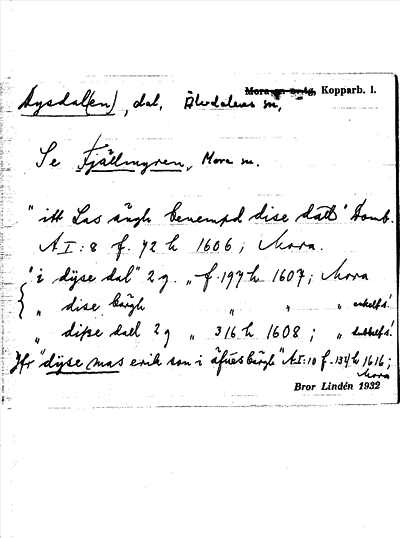 Dysdal(en), dal, Älvdalens sn, Kopparb. l.
Se Fjällmyren, Mora sn.
"itt Las ängh benempd dise dall" Domb.
A I: 8 f. 72 h 1606; Mora.
"i dÿse dal" 2 g. „ f. 197 h 1607; Mora
„ dise bärgh „ „ „ enkelfs!
„ dise dall 2 g „ 316 h 1608; „
Jfr "dÿse mas erik son i äfnesbärgh" A I: 10 f. 134 h 1616; Mora
Bror Lindén 1932